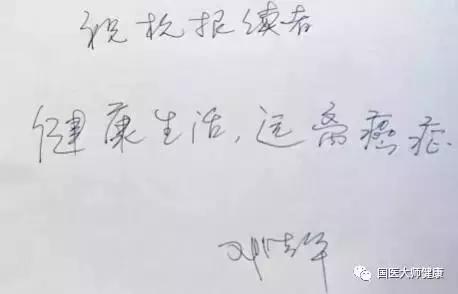 祝杭报读者
健康生活，远离癌症
国医大师健康